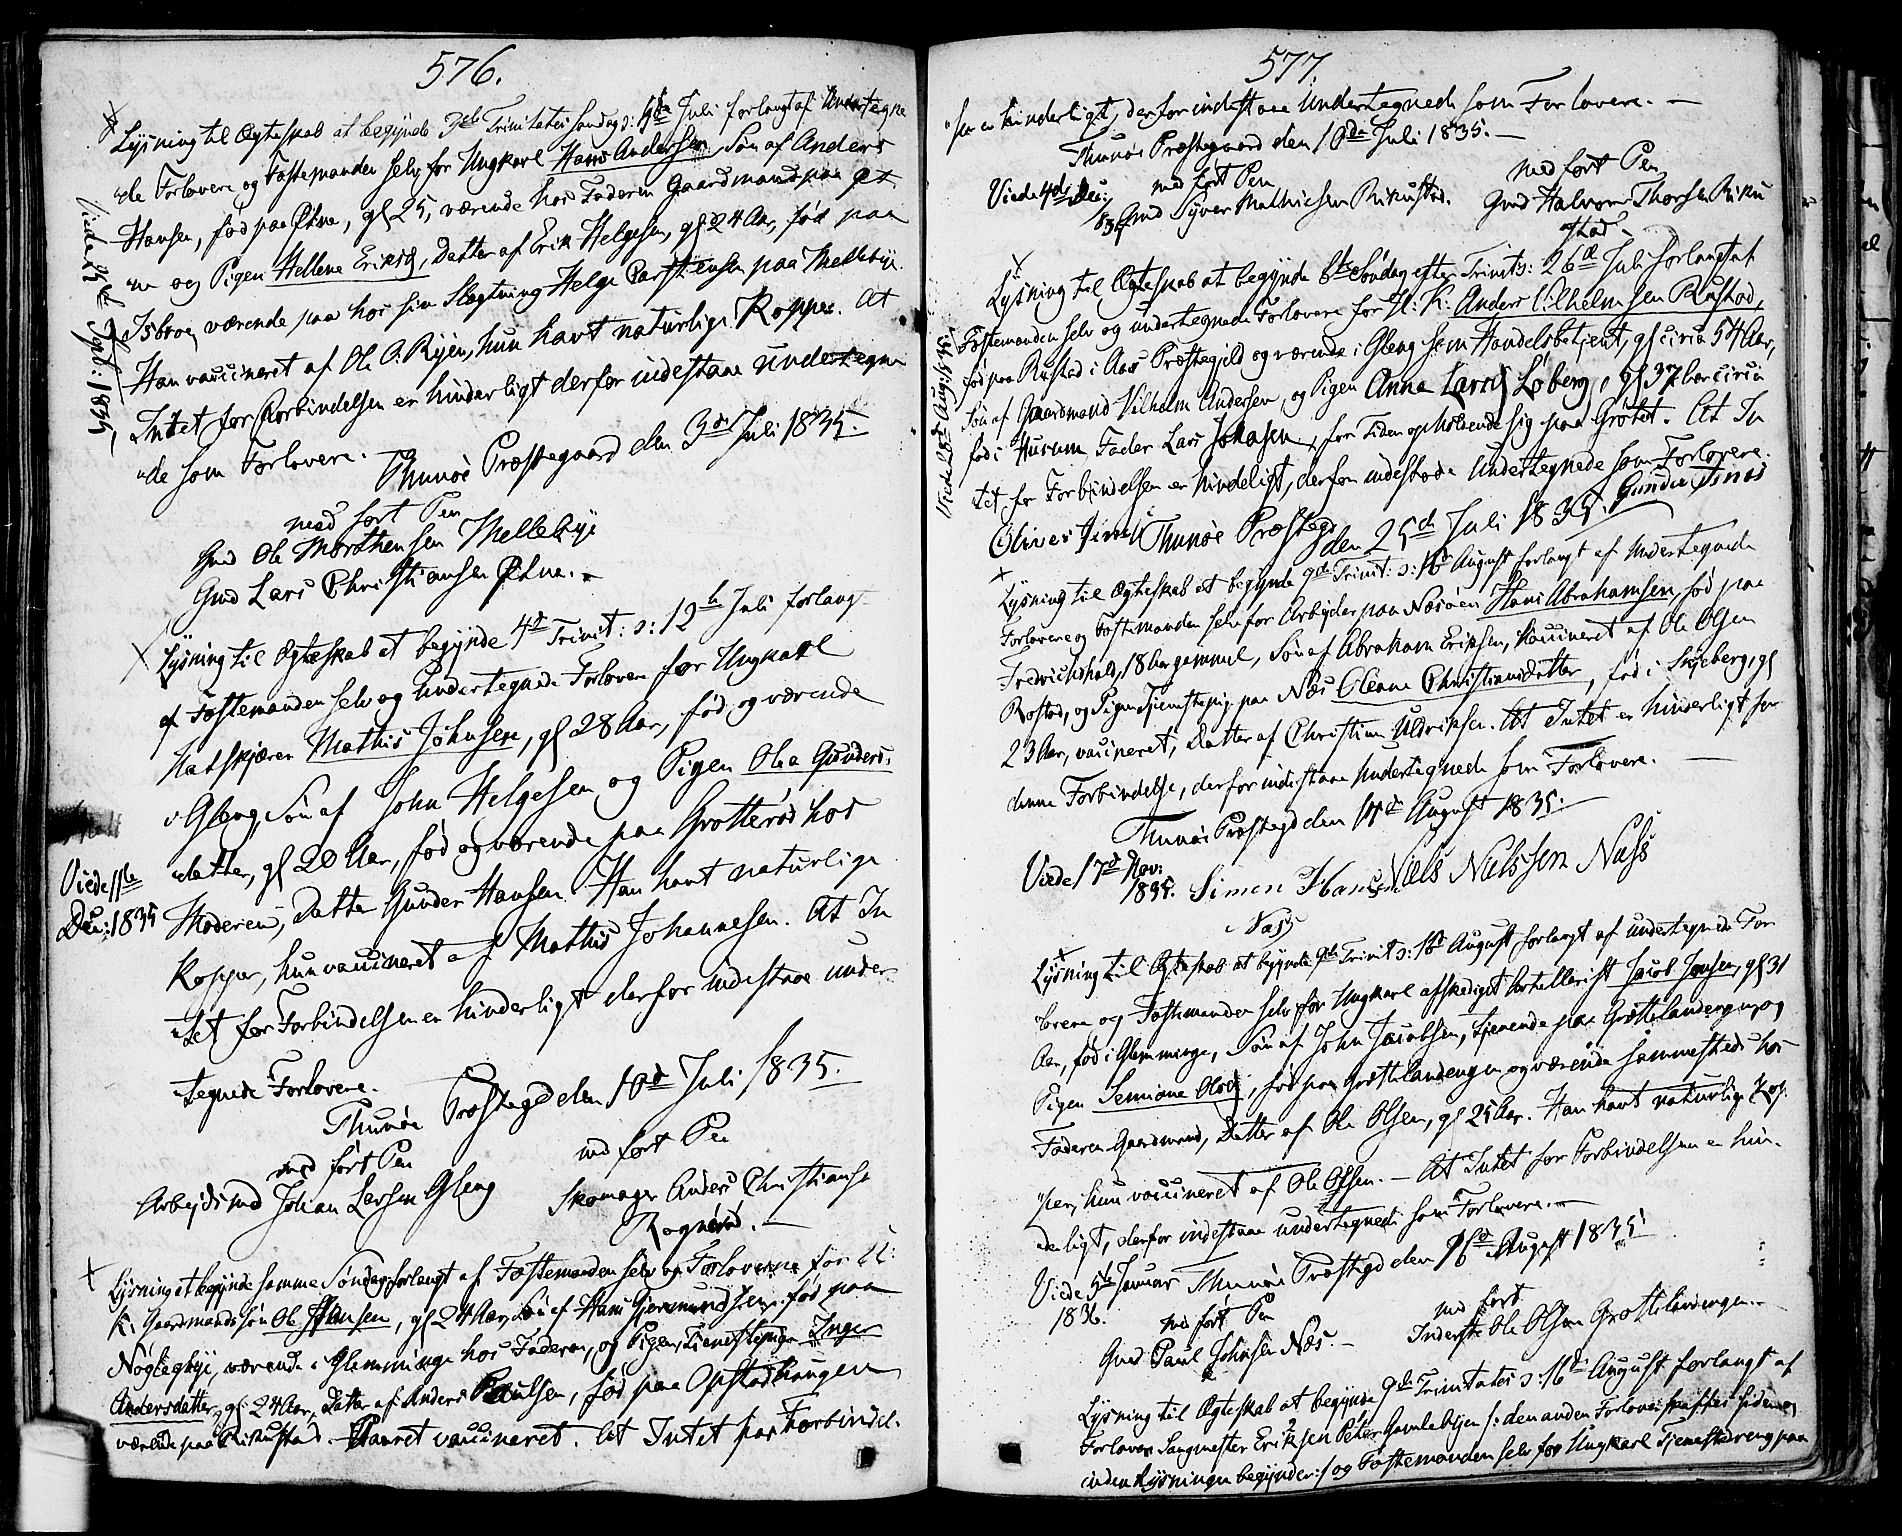 576.
Lysning til Ægteskab at begynde 3de Trinitatis Søndag ɔ: 5te Juli forlangt af Undertegne
de Forlovere og Fæstemanden selv for Ungkarl Hans Andersen, Søn af Anders
Hansen, fød paa Ætne, gl 25, værende hos Faderen Gaardmand paa Æt
ne og Pigen Hellene Eriksd, Datter af Erik Helgesen, gl 24 Aar, fød paa
Isbroe, værende paa hos sin Slægtning Helge Carstensen paa Mellebye.
Han vaccineret af Ole O. Ryen, hun havt naturlige Kopper. At
Intet for Forbindelsen er hinderligt derfor indestaae undertegne
de som Forlovere.
Viede 25de Sept: 1835
Thunøe Præstegaard den 3de Juli 1835.
med ført Pen
Gmd Ole Morthensen Mellebye
Gmd Lars Christiansen Ætne.
Lysning til Ægteskab at begynde 4de Trinit: ɔ: 12te Juli forlangt
af Fæstemanden selv og Undertegnede Forlovere for Ungkarl
Matskjærer Mathis Johnsen, gl 28 Aar, fød og værende
i Gleng, Søn af John Helgesen og Pigen Olea Gunders
datter, gl 20 Aar, fød og værende paa Grotterød hos
Moderen, Datter Gunder Hansen. Han havt naturlige
Kopper, hun vaccineret af Mathis Johannesen. At In
tet for Forbindelsen er hinderligt derfor indestaae under
tegnede Forlovere.
Viede 11te
Dec: 1835
Thunøe Præstegd den 10de Juli 1835.
med ført Pen
med ført Pen
Arbejdsmd Johan Larsen Gleng
Skomager Anders Christianse
Rognerød.
Lysning at begynde samme Søndag forlangt af Fæstemanden selv og Forloverne for U:
K: Gaardmandssøn Ole Hansen, gl 24 Aar, Søn af Hans Gjermundsen, fød paa
Nøglegbye, værende i Glemminge hos Faderen, og Pigen, Tienestepige Inger
Andersdatter, gl: 24 Aar, Datter af Anders Poulsen, fød paa Opstadhaugen
værende paa Rikustad. Parret vaccineret. At Intet for Forbindel
577.
sen er hinderligt, derfor indestaae Undertegnede som Forlovere.
Thunøe Præstegaard den 10de Juli 1835.
Viede 4de Dec:
1835
med ført Pen
Gmd Syver Mathiesen Rikustad.
med ført Pen
Gmd Halvor Thorsen Riku
stad
Lysning til Ægteskab at begynde 6te Søndag efter Trinit ɔ: 26de Juli forlangt af
Fæstemanden selv og undertegnede Forlovere for U: K: Anders Vilhelmsen Rustad,
fød paa Rustad i Aas Præstegjeld og værende i Gleng som Handelsbetjent, gl circa 54 Aar,
Søn af Gaardmand Vilhelm Andersen, og Pigen Anna Larsd Løberg, gl 37 Aar circa
fød i Hurum, Fader Lars Johnsen, for Tiden opholdende sig paa Grøtet. At In
tet for Forbindelsen er hinderligt, derfor indestaae Undertegnede som Forlovere.
Viede 28de Aug: 1835
Thunøe Præstegd den 25de Juli 1835.
Lysning til Ægteskab at begynde 9de Trinit: ɔ: 16de August forlangt af Undertegnede
Forlovere og Fæstemanden selv for Arbejder paa Næsøen Hans Abrahamsen, fød paa
Fredrichshald, 18 Aar gammel, Søn af Abraham Eriksen, vaccineret af Ole Olsen
Rostad, og Pigen Tjenestepig. paa Næs Oleane Christiansdatter, fød i Skjeberg, gl
23 Aar, vaccineret, Datter af Christian Uldriksen. At Intet er hinderligt for
denne Forbindelse, derfor indestaae Undertegnede som Forlovere.
Thunøe Præstegd den 14de August 1835.
Viede 17de Nov:
1835.
Simon Hansen
Næss
Niels Nielssen Næss
Lysning til Ægteskab at begynde 9de Trinit ɔ: 16de August forlangt af undertegnede For
lovere og Fæstemanden selv for Ungkarl afskediget Artellerist Jacob Jonsen, gl 31
Aar, fød i Glemminge, Søn af John Jacobsen, tjenende paa Grøttelandengen, og
Pigen Semiane Olsd, fød paa Grøttelandengen og værende sammesteds hos
Faderen Gaardmand, Datter af Ole Olsen, gl 25 Aar. Han havt naturlige Kop
per, hun vaccineret af Ole Olsen. At Intet for Forbindelsen er hin
derligt, derfor indestaae undertegnede som Forlovere.
Viede 5te Januar
1836.
Thunøe Præstegd den 16de August 1835
med ført Pen
Gmd Paul Johnsen Næs.
med ført
Inderste Ole Olsen Grøttelandengen.
Lysning til Ægteskab at begynde 9de Trinitatis ɔ: 16de August forlangt af
Forlover Saugmester Eriksen Peter Gamlebyen /: den anden Forlover skaffes siden og
inden Lysningen begynder:/ og Fæstemanden selv for Ungkarl Tjenestedreng paa